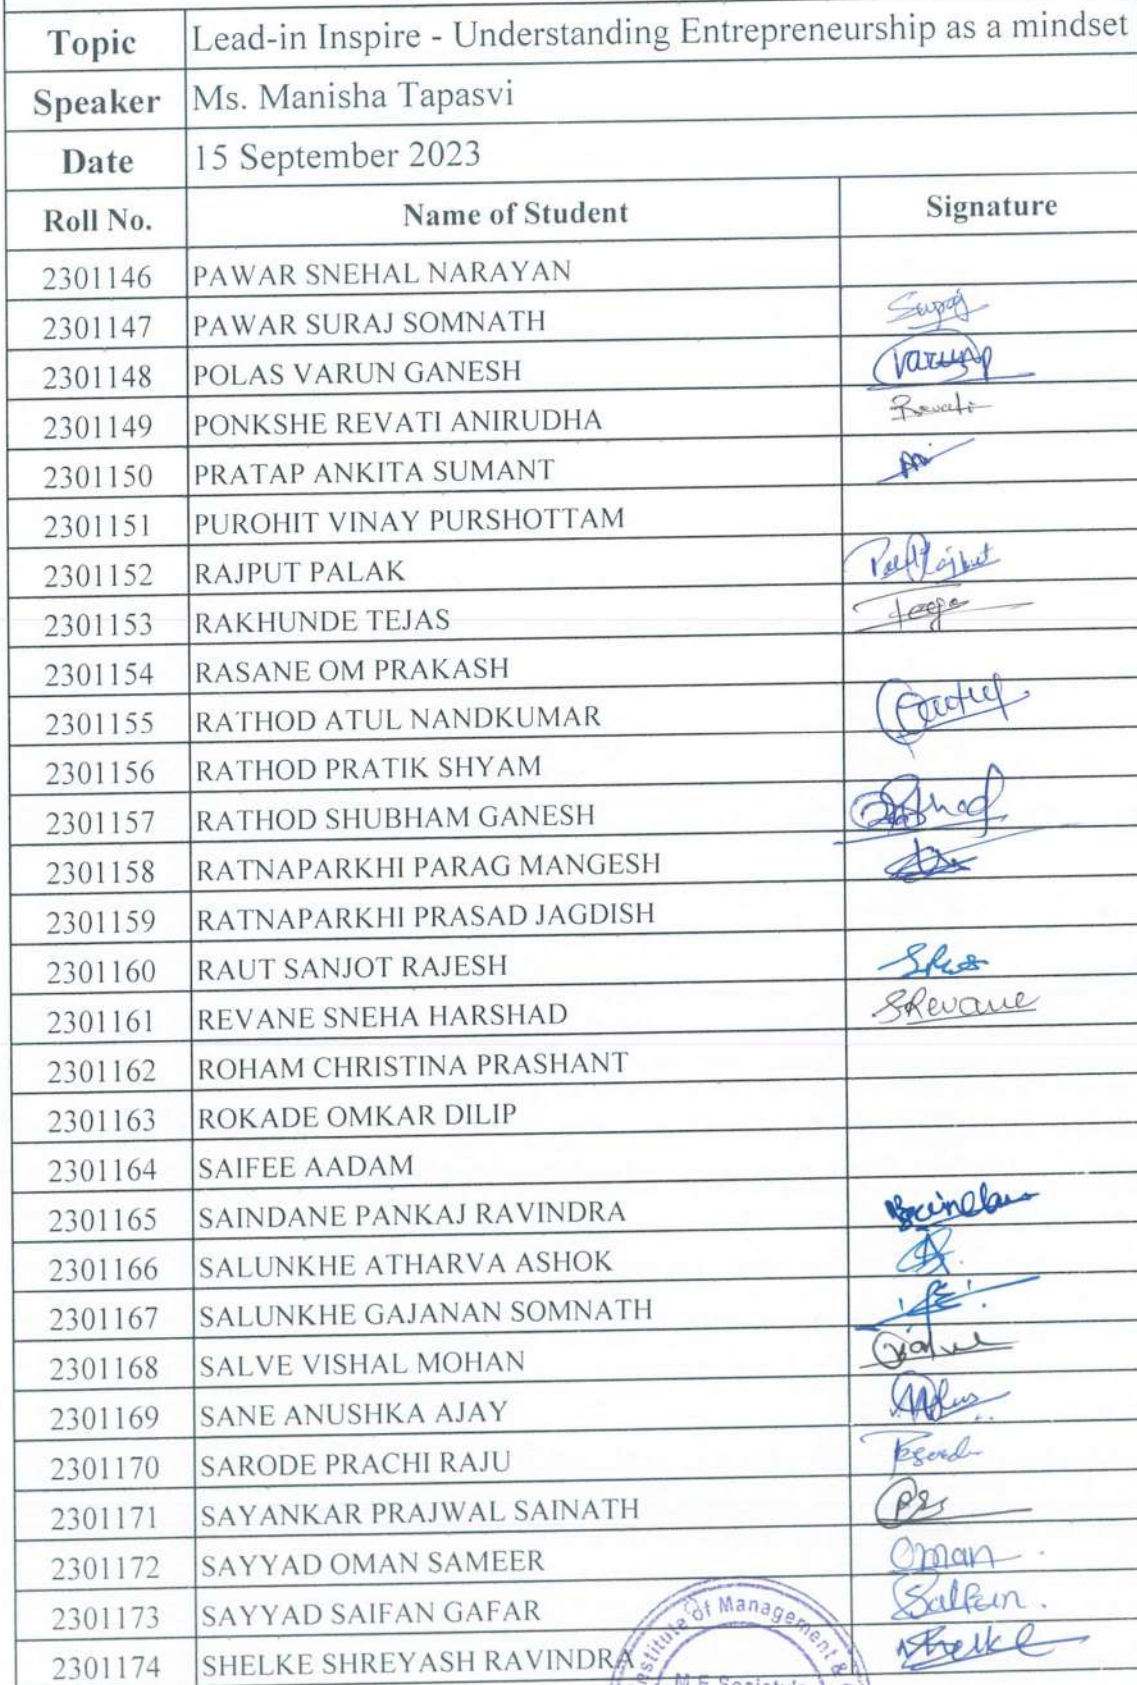 Topic Lead-in Inspire - Understanding Entrepreneurship as a mindset
Speaker Ms. Manisha Tapasvi
Date 15 September 2023
Roll No. Name of Student Signature
2301146 PAWAR SNEHAL NARAYAN
2301147 PAWAR SURAJ SOMNATH Suraj
2301148 POLAS VARUN GANESH Varun
2301149 PONKSHE REVATI ANIRUDHA Revati
2301150 PRATAP ANKITA SUMANT
2301151 PUROHIT VINAY PURSHOTTAM
2301152 RAJPUT PALAK
2301153 RAKHUNDE TEJAS
2301154 RASANE OM PRAKASH
2301155 RATHOD ATUL NANDKUMAR
2301156 RATHOD PRATIK SHYAM
2301157 RATHOD SHUBHAM GANESH
2301158 RATNAPARKHI PARAG MANGESH
2301159 RATNAPARKHI PRASAD JAGDISH
2301160 RAUT SANJOT RAJESH
2301161 REVANE SNEHA HARSHAD SRevane
2301162 ROHAM CHRISTINA PRASHANT
2301163 ROKADE OMKAR DILIP
2301164 SAIFEE AADAM
2301165 SAINDANE PANKAJ RAVINDRA
2301166 SALUNKHE ATHARVA ASHOK
2301167 SALUNKHE GAJANAN SOMNATH
2301168 SALVE VISHAL MOHAN
2301169 SANE ANUSHKA AJAY
2301170 SARODE PRACHI RAJU
2301171 SAYANKAR PRAJWAL SAINATH
2301172 SAYYAD OMAN SAMEER Oman
2301173 SAYYAD SAIFAN GAFAR
2301174 SHELKE SHREYASH RAVINDRA
of Management &